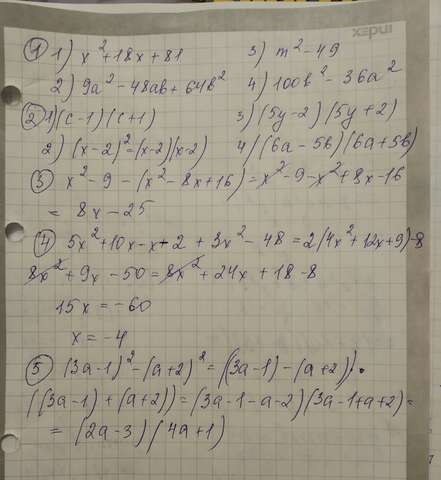 index
① 1) x²+18x+81 3) m²-49
2) 9a²-48ab+64b² 4) 100b²-36a²
② 1)(c-1)(c+1) 3) (5y-2)(5y+2)
2) (x-2)²=(x-2)(x-2) 4) (6a-5b)(6a+5b)
③ x²-9-(x²-8x+16)=x²-9-x²+8x-16
= 8x-25
④ 5x²+10x-x-2+3x²-48=2(4x²+12x+9)-8
8x²+9x-50=8x²+24x+18-8
15x=-60
x=-4
⑤ (3a-1)²-(a+2)²=((3a-1)-(a+2))·
((3a-1)+(a+2))=(3a-1-a-2)(3a-1+a+2)=
= (2a-3)(4a+1)